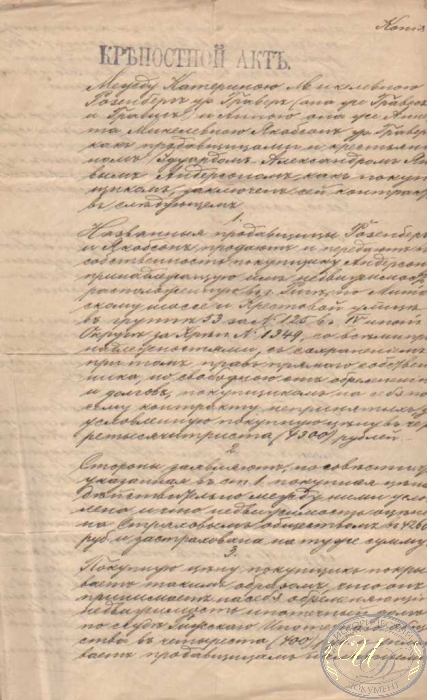 Копія
КРѢПОСТНОЙ АКТЪ.
Между Катериною Микелевною
Розенбергъ ур. Граверъ (она же Гравдо
и Гравитъ) и Анною она же Анне
та Микелевною Якобсонъ ур. Граверъ
какъ продавщицами и крестьяни
номъ Эдуардомъ Александромъ
Андерсономъ, какъ покуп
щикомъ, заключенъ сей контрактъ
въ слѣдующемъ
1.
Названныя продавщицы Розенбергъ
и Якобсонъ продаютъ и передаютъ въ
собственность покупщику Андерсону
принадлежащую имъ недвижимость,
расположенную въ г. Ригѣ, по
скому шоссе и Крестовой улицѣ
въ группѣ 53 за № 125 въ IV ипот.
Округа за Крѣп № 1349, со всѣми при
надлежностями, съ сохраненіемъ
при томъ правъ прямого собствен
ника, но свободною отъ обремененій
и долговъ, покупщикомъ на себя по
сему контракту непринятыхъ, за
условленную покупную цѣну въ че
ретысячитриста (4300) рублей.
2.
Стороны заявляютъ, по совѣсти, что
указанная въ ст. 1. покупная цѣна
дѣйствительно между ними усло
влена и что недвижимость оцѣне
на Страховымъ обществомъ въ 4260
руб и застрахована на ту же сумму.
3.
Покупную цѣну покупщикъ покры
ваетъ такимъ образомъ, что онъ
принимаетъ на себя обременяющій
недвижимость ипотечный долгъ
по ссудѣ Рижскаго Ипотечнаго Об
ства въ четыреста (400) руб.
ваетъ продавщицамъ
ДОКУМЕНТ